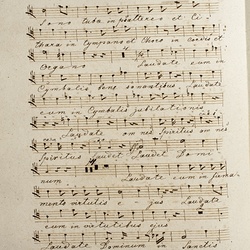 Sono tuba in psalterio et ci-
thara in tympano et Choro in cordis et
Organo Laudate eum in
Cymbalis bene sonantibus, Laudate
eum in Cymbalis jubilationis
Laudate omnes Spiritus om nes
Spiritus Laudet Laudet Domi
num Laudate eum in firma-
mento virtutis e-jus Laudate
eum in virtutibus ejus
Laudate Dominum in Sanctis